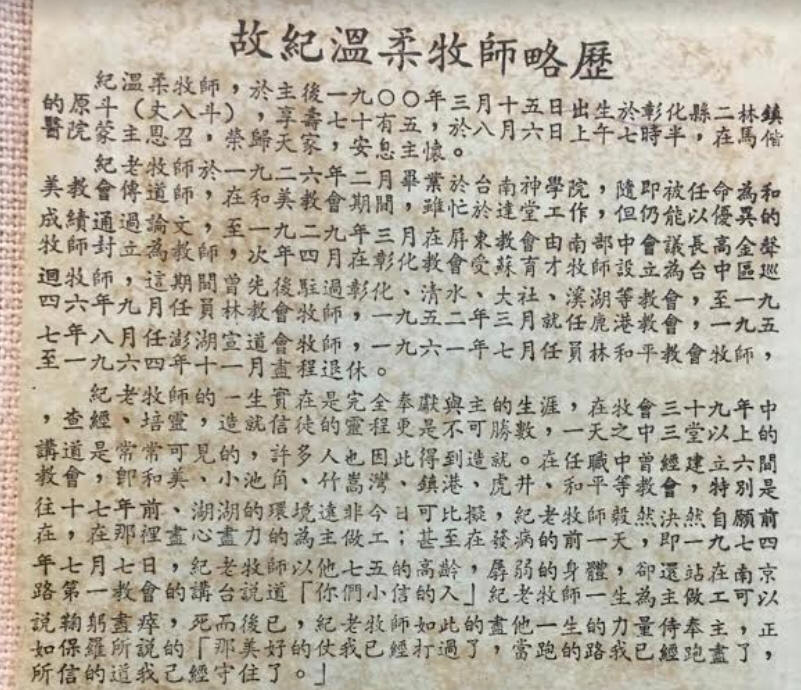 故紀溫柔牧師略歷
紀溫柔牧師，於主後一九〇〇年三月十五日出生於彰化縣二林鎮
的原斗（丈八斗），享壽七十有五，於八月六日上午七時半，在馬偕
醫院蒙主恩召，榮歸天家，安息主懷。
紀老牧師於一九二六年二月畢業於台南神學院，隨即被任命為和
美教會傳道師，在和美教會期間，雖忙於達堂工作，但仍能以優異的
成績通過論文，至一九二九年三月在屏東教會由南部中會議長高金聲
牧師封立為教師，次年四月在彰化教會受蘇育才牧師設立為台中區巡
迴牧師，這期間曾先後駐過彰化、清水、大社、溪湖等教會，至一九
四六年九月任員林教會牧師，一九五二年三月就任鹿港教會，一九五
七年八月任澎湖宣道會牧師，一九六一年七月任員林和平教會牧師，
至一九六四年十一月盡程退休。
紀老牧師的一生實在是完全奉獻與主的生涯，在牧會三十九年中
，查經、培靈，造就信徒的靈程更是不可勝數，一天之中三堂以上的
講道是常常可見的，許多人也因此得到造就。在任職中曾經建立六間
教會，即和美、小池角、竹嵩灣、鎮港、虎井、和平等教會，特別是
往十七年前、湖湖的環境遠非今日可比擬，紀老牧師毅然決然自願前
在，在那裡盡心盡力的為主做工；甚至在發病的前一天，即一九七四
年七月七日，紀老牧師以他七五的高齡，孱弱的身體，卻還站在南京
路第一教會的講台說道「你們小信的人」紀老牧師一生為主做工可以
說鞠躬盡瘁，死而後已，紀老牧師如此的盡他一生的力量侍奉主，正，
如保羅所說的「那美好的仗我已經打過了，當跑的路我已經跑盡了，
所信的道我已經守住了。」